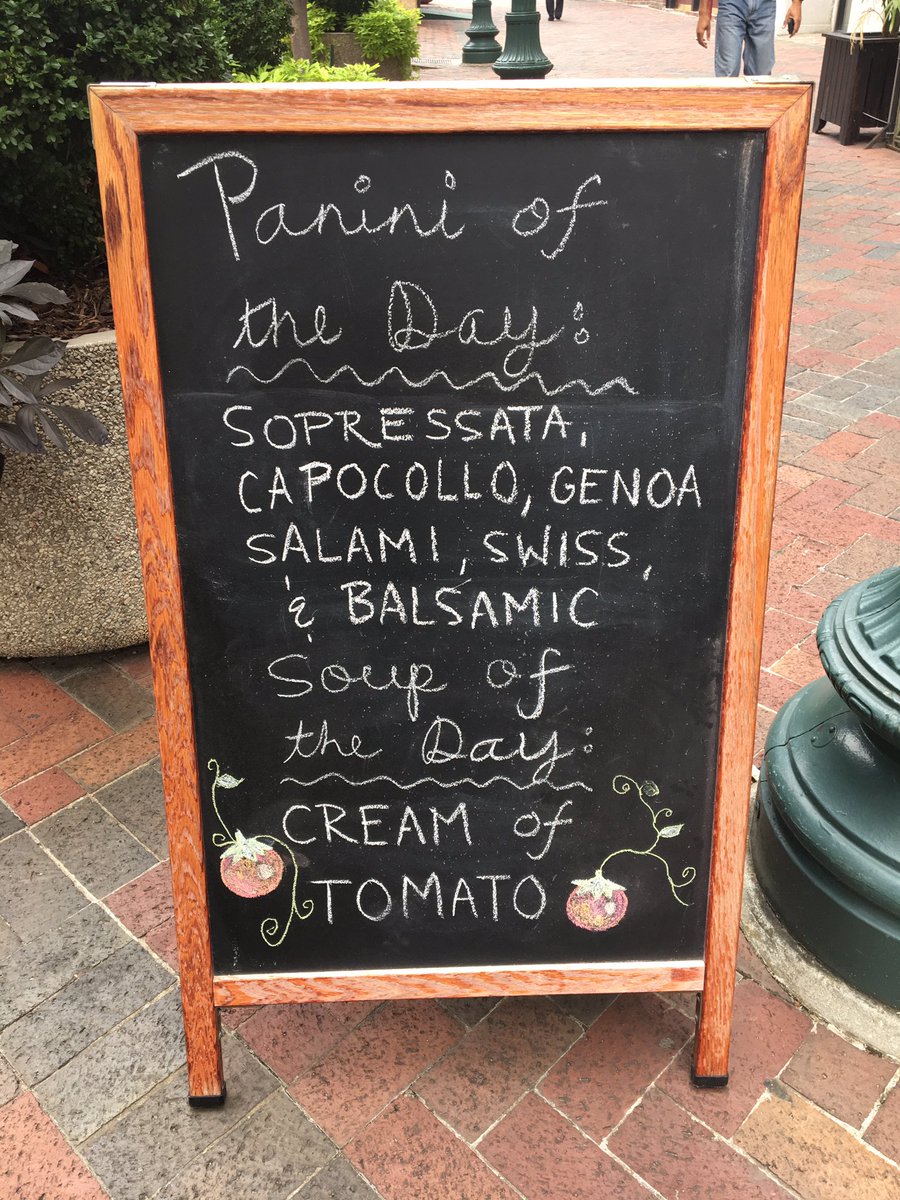 Panini of
the Day:
SOPRESSATA,
CAPOCOLLO, GENOA
SALAMI, SWISS,
& BALSAMIC
Soup of
the Day:
CREAM of
TOMATO